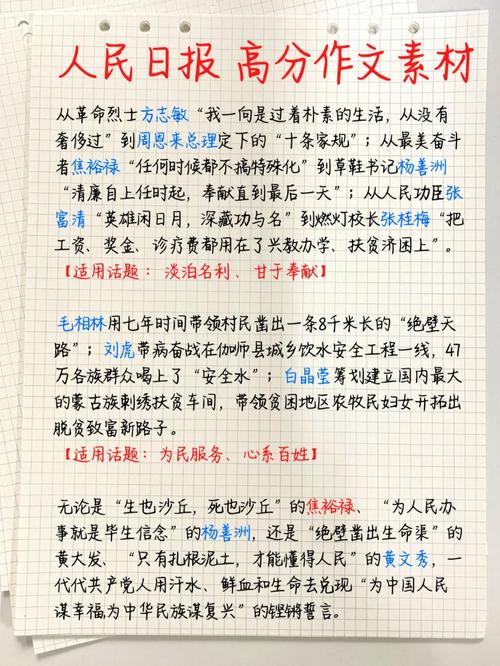 人民日报 高分作文素材
从革命烈士方志敏“我一向是过着朴素的生活，从没有
奢侈过”到周恩来总理定下的“十条家规”；从最美奋斗
者焦裕禄“任何时候都不搞特殊化”到草鞋书记杨善洲
“清廉自上任时起，奉献直到最后一天”；从人民功臣张
富清“英雄闲日月，深藏功与名”到燃灯校长张桂梅“把
工资、奖金、诊疗费都用在了兴教办学、扶贫济困上”。
【适用话题：淡泊名利、甘于奉献】
毛相林用七年时间带领村民凿出一条8千米长的“绝壁天
路”；刘虎带病奋战在伽师县城乡饮水安全工程一线，47
万各族群众喝上了“安全水”；白晶莹筹划建立国内最大
的蒙古族刺绣扶贫车间，带领贫困地区农牧民妇女开拓出
脱贫致富新路子。
【适用话题：为民服务、心系百姓】
无论是“生也沙丘，死也沙丘”的焦裕禄、“为人民办
事就是毕生信念”的杨善洲，还是“绝壁凿出生命渠”的
黄大发、“只有扎根泥土，才能懂得人民”的黄文秀，一
代代共产党人用汗水、鲜血和生命去兑现“为中国人民
谋幸福为中华民族谋复兴”的铿锵誓言。